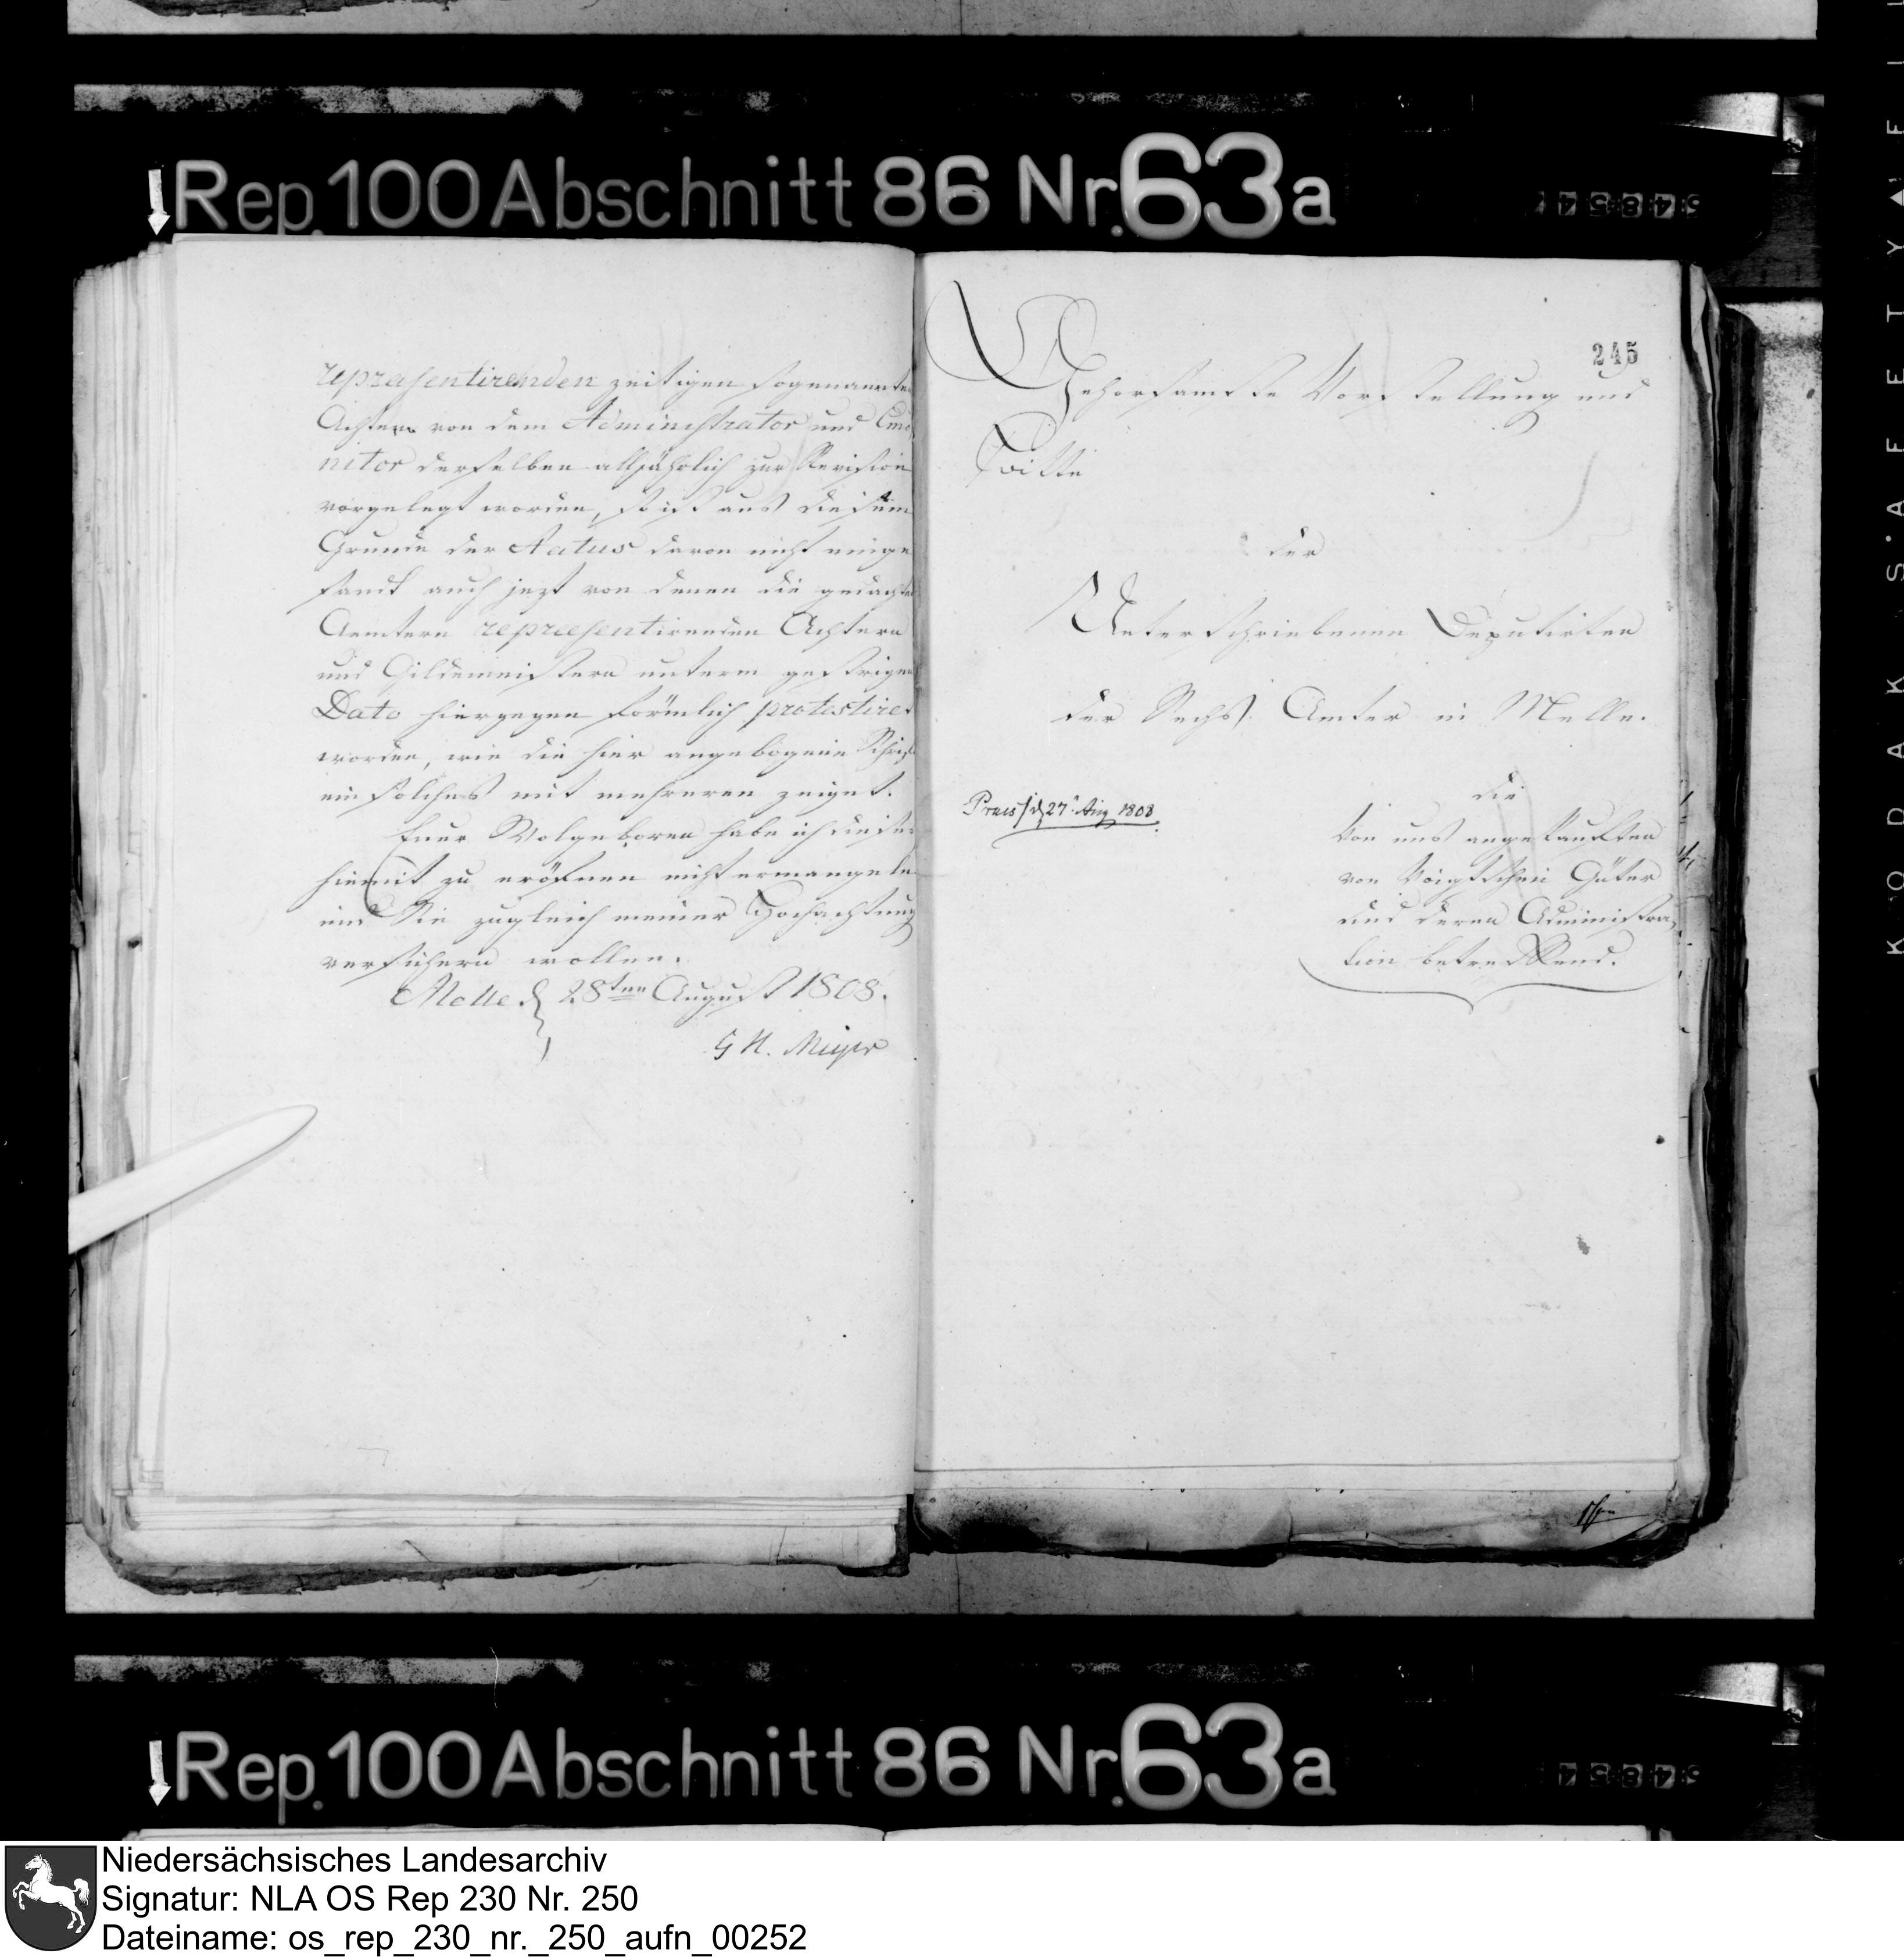 Rep. 100 Abschnitt 86 Nr. 63a
repraesentirenden zeitigen sogenannten
Achtern von dem Administrator und Emo
nitor derselben alljährlich zur Revision
vorgelegt worden, so ist aus diesem
Grunde der Status davon nicht einge
sandt auch jezt von denen die gedachte
Aemtern repraesentirenden Achtern
und Gildemeistern unterm gestrigen
Dato hiergegen förmlich protestiret
worden, wie die hier angebogene Schrift
ein solches mit mehreren zeiget.
Euer Wolgeboren habe ich dieses
hiemit zu eröfnen nicht ermangele
und Sie zugleich meiner Hochachtung
versichern wollen.
Melle d 28ten August 1808.
G H. Meyer
245
Gehorsamste Vorstellung und
Bitte
der
Unterschriebenen Deputirten
der Sechs Amter in Melle.
Praes / d 27 Aug 1808
die
von uns angekauften
von Voigtschen Güter
und deren Administra
tion betreffend.
Rep. 100 Abschnitt 86 Nr. 63a
KODAK S·AFETY
Niedersächsisches Landesarchiv
Signatur: NLA OS Rep 230 Nr. 250
Dateiname: os_rep_230_nr._250_aufn_00252